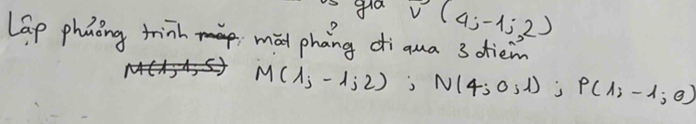 giả v (4;-1;2)
Lập phương trình mặt phẳng đi qua 3 điểm
M(1;-1;2) ; N(4;0;1) ; P(1;-1;0)